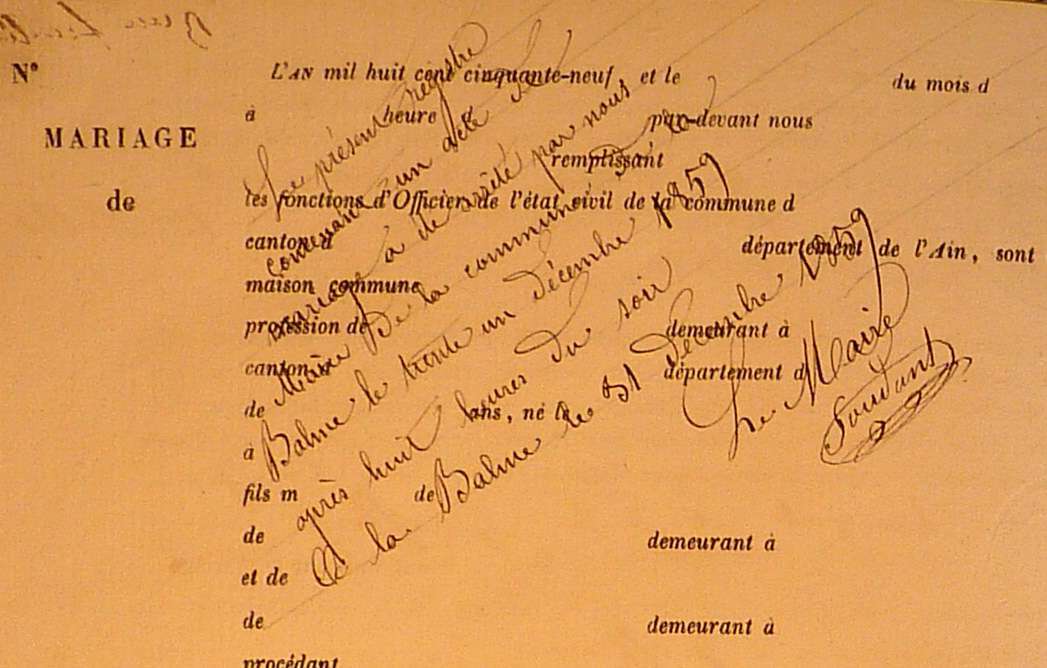 N°
L'AN mil huit cent cinquante-neuf, et le du mois d
à heure par-devant nous
MARIAGE
remplissant
de
les fonctions d'Officier de l'état civil de la commune d
canton d département de l'Ain, sont
maison commune
profession de demeurant à
canton département d
de ans, né le
à
fils m de
de demeurant à
et de
de demeurant à
procédant
Le présent registre
contenant un acte de
mariage à de arrêté par nous
Maire De la commune De la
Balme le trente un décembre 1859
après huit heures du soir
A la Balme le 31 Décembre 1859
Le Maire